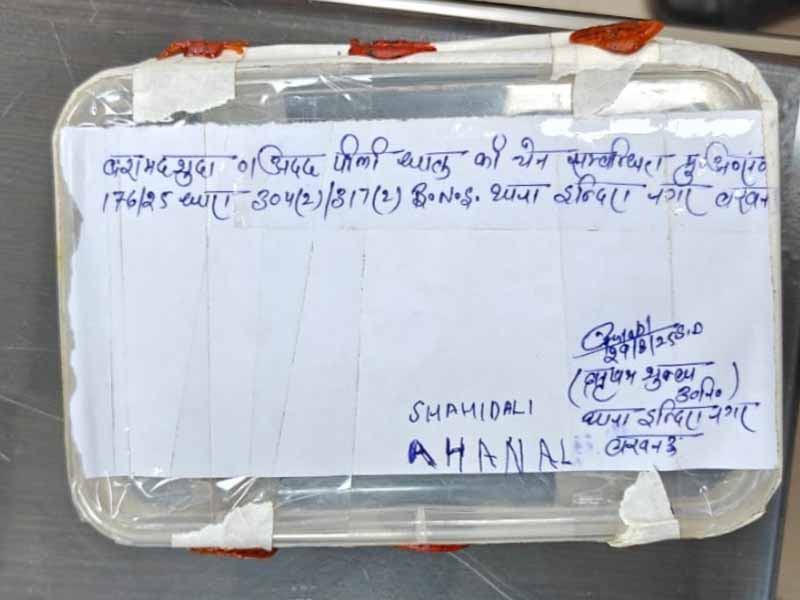 बरामद शुदा 01 अदद पीली धातु की चेन सम्बन्धित मु०अ०सं०
176/25 धारा 304(2)/317(2) B.N.S. थाना इन्दिरा नगर लखनऊ
29/8/25 S.I.
शुक्ला
उ०नि०)
थाना इन्दिरा नगर
लखनऊ
SHAHIDALI
AHANAL